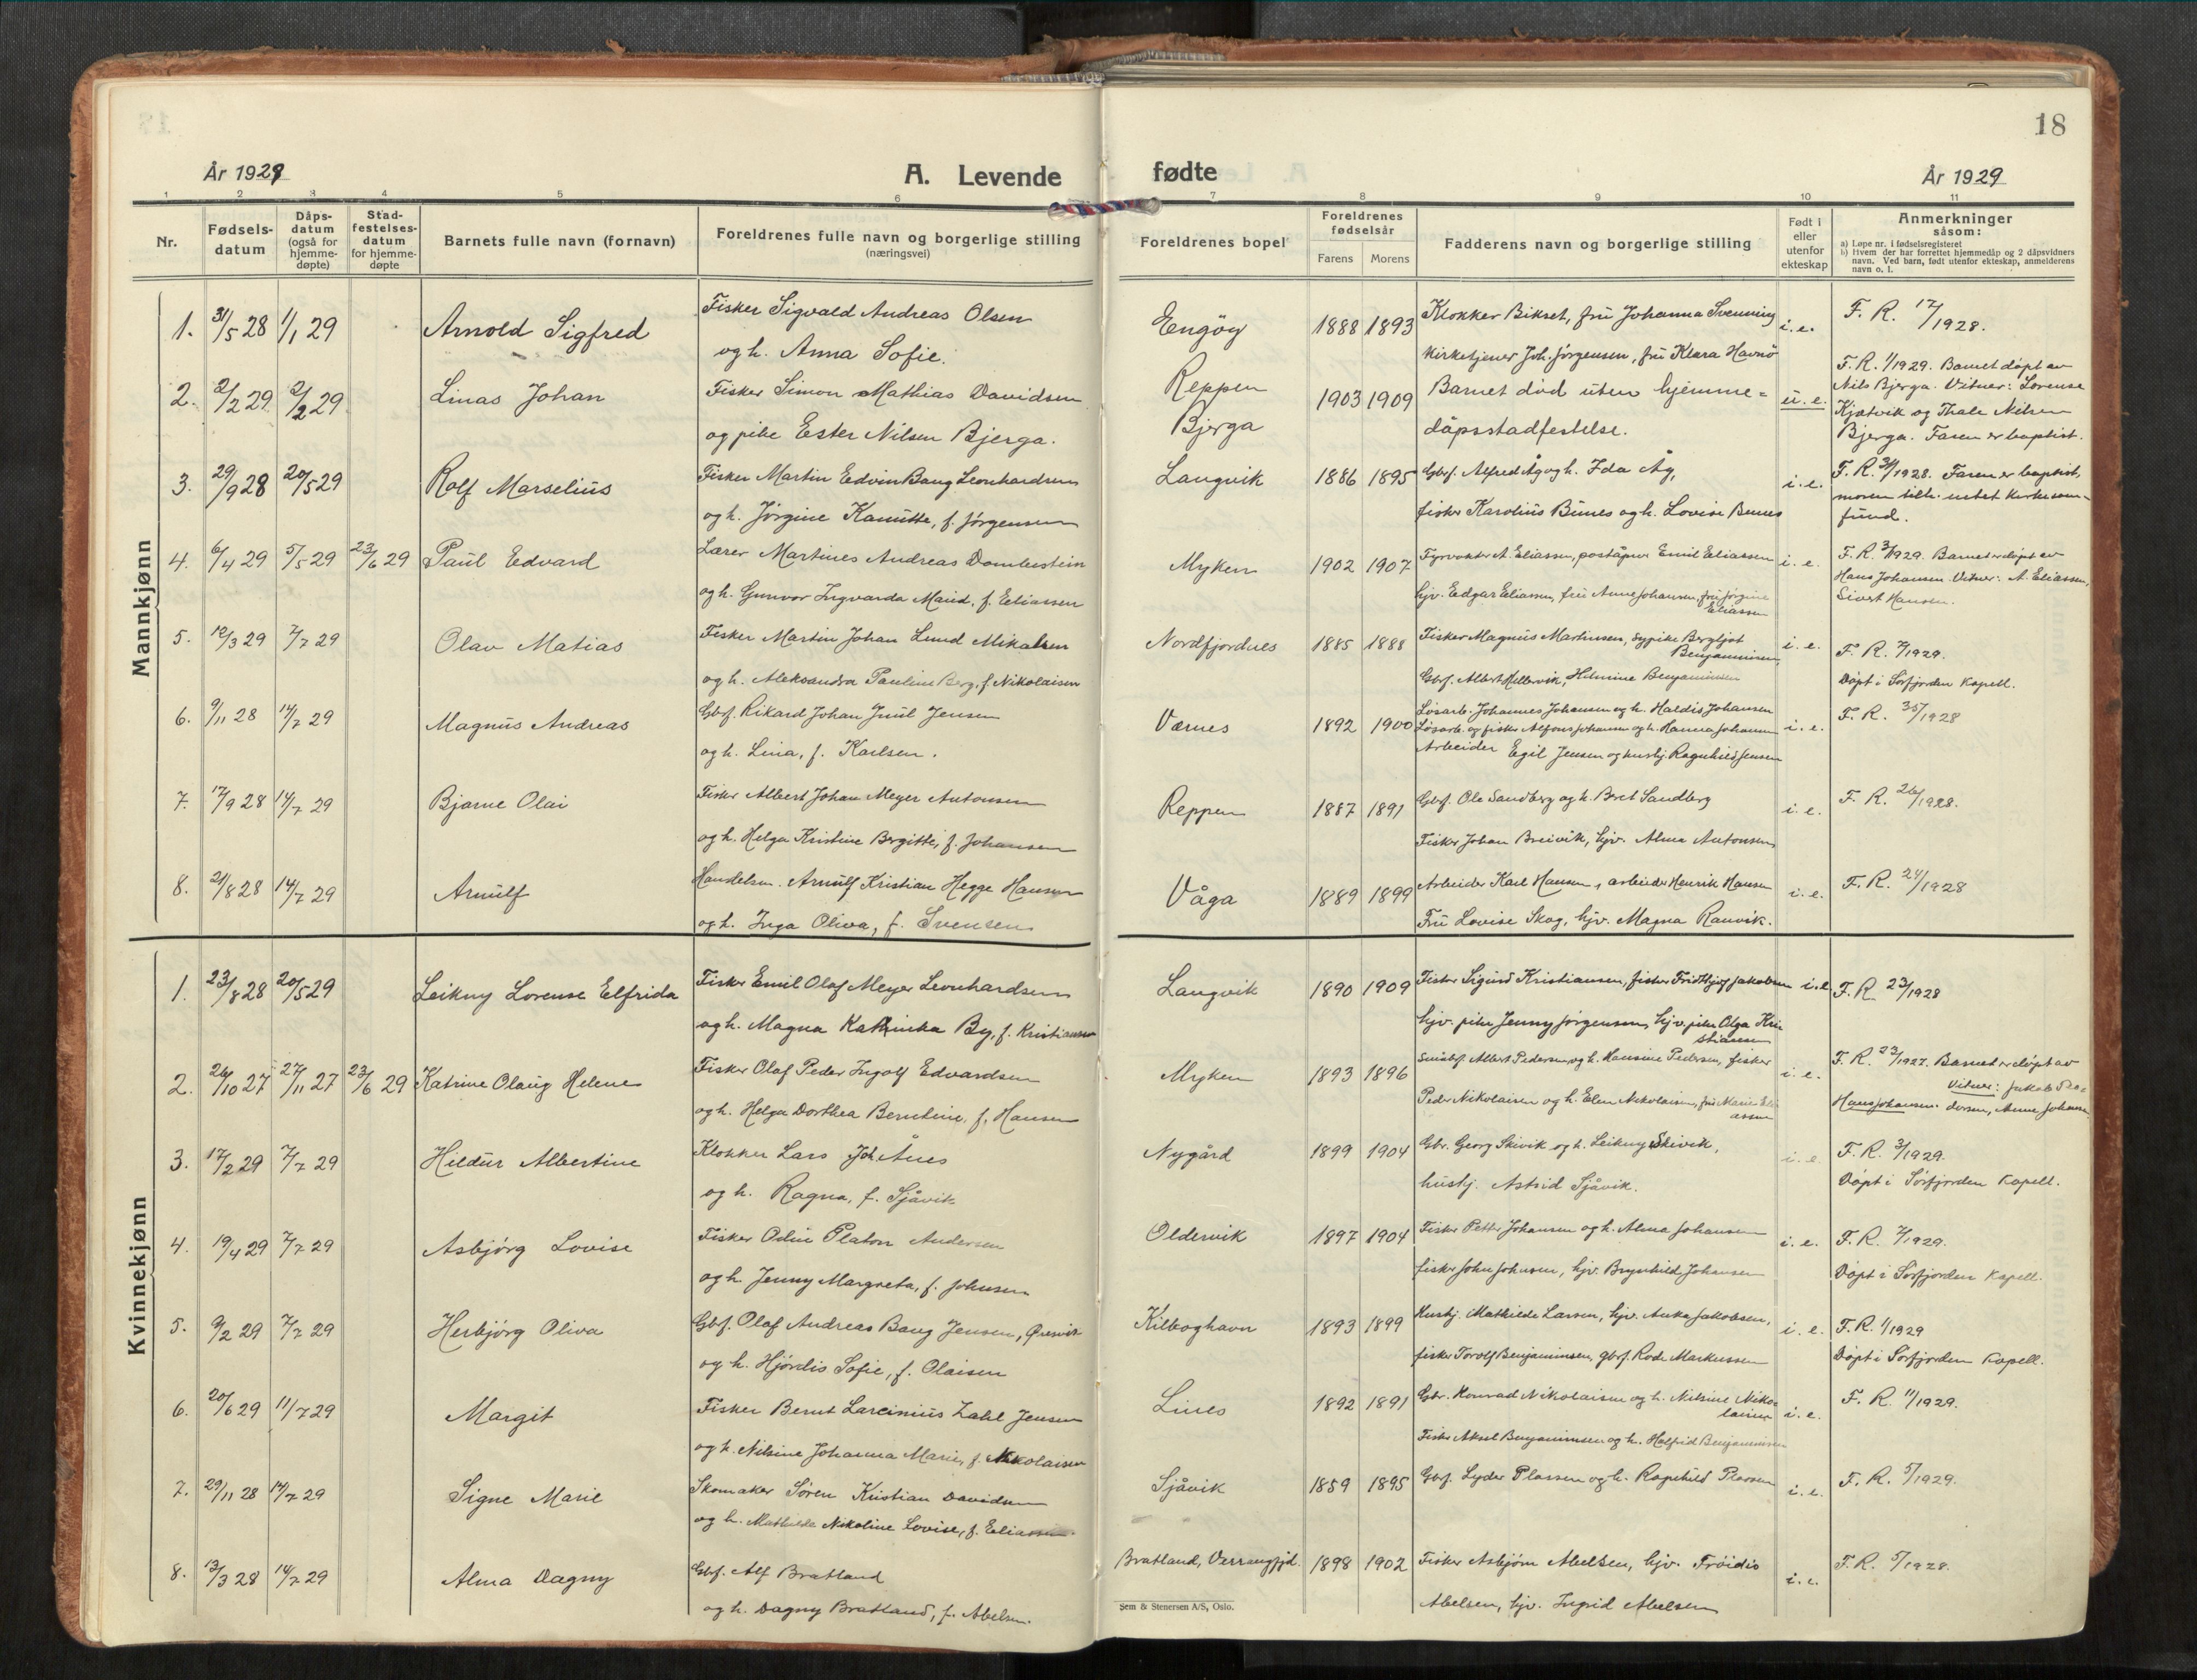 18
År 1929
A. Levende
fødte
År 1929
1 2 3 4 5 6 7 8 9 10 11
Nr.
Fødsels-
datum
Dåps-
datum
(også for
hjemme-
døpte)
Stad-
festelses-
datum
for hjemme-
døpte
Barnets fulle navn (fornavn)
Foreldrenes fulle navn og borgerlige stilling
(næringsvei)
Foreldrenes bopel
Foreldrenes
fødselsår
Farens Morens
Fadderens navn og borgerlige stilling
Født i
eller
utenfor
ekteskap
Anmerkninger
såsom:
a) Løpe nr. i fødselsregisteret
b) Hvem der har forrettet hjemmedåp og 2 dåpsvidners
navn. Ved barn, født utenfor ekteskap, anmelderens
navn o. l.
Mannkjønn
1. 31/5 28 1/1 29 Arnold Sigfred
Fisker Sigvald Andreas Olsen
og h. Anna Sofie.
Engøy 1888 1893
Klokker Bikset, frú Johanna Svenning
kirketjener Joh. Jørgensen, frú Klara Havnø
i. e.
F. R. 17/1928.
2. 2/2 29 2/2 29 Linas Johan
Fisker Simon Mathias Davidsen
og pike Ester Nilsen Bjerga.
Reppen
Bjerga
1903 1909
Barnet død uten hjemme=
dåpsstadfestelse.
ú. e.
F. R. 1/1929. Barnet døpt av
Nils Bjerga. Vitner: Lorense
Kjætvik og Thale Nilsen
Bjerga. Faren er baptist.
3. 29/9 28 20/5 29 Rolf Marseliús
Fisker Martin Edvin Baug Leonhardsen
og h. Jørgine Kanutte, f. Jørgensen
Langvik 1886 1895
Gbrf. Alfred Åg og h. Ida Åg,
fisker Karoliús Búnes og h. Lovise Bunes
i. e.
F. R. 31/1928. Faren er baptist,
moren tilh. intet kirkesam-
fúnd.
4. 6/4 29 5/5 29 23/6 29 Paúl Edvard
Lærer Martines Andreas Dombestein
og h. Gunvor Ingvarda Maúd, f. Eliassen
Myken 1902 1907
Fyrvokter A. Eliassen, poståpner Emil Eliassen
hjv. Edgar Eliassen, frú Anne Johansen, frú Jørgine
Eliassen
i. e.
F. R. 3/1929. Barnet er døpt av
Hans Johansen. Vitner: A. Eliassen,
Sivert Hansen.
5. 12/3 29 7/7 29 Olav Matias
Fisker Martin Johan Lund Mikalsen
og h. Aleksandra Pauline Berg, f. Nikolaisen
Nordfjordnes 1885 1888
Fisker Magnús Martinsen, sypike Bergljot
Benjaminsen,
Gbrf. Albert Hellervik, Hilmine Benjaminsen
i. e.
F. R. 2/1929.
Døpt i Sørfjorden Kapell.
6. 9/11 28 14/7 29 Magnús Andreas
Gbrf. Rikard Johan Juul Jensen
og h. Lina, f. Karlsen.
Værnes 1892 1900
Løsarb. Johannes Johansen og h. Haldis Johansen
Løsarb. og fisker Alfons Johansen og h. Hanna Johansen
Arbeider Egil Jensen og húshj. Ragnhild Jensen
i. e.
F. R. 35/1928
7. 17/9 28 14/7 29 Bjarne Olai
Fisker Albert Johan Meyer Antonsen
og h. Helga Kristine Bergitte, f. Johansen
Reppen 1887 1891
Gbrf. Ole Sandberg og h. Bret Sandberg
Fisker Johan Breivik, hjv. Alma Antonsen
i. e.
F. R. 26/1928.
8. 21/8 28 14/7 29 Arnúlf
Handelsm. Arnulf Kristian Hegge Hansen
og h. Inga Oliva, f. Svensen
Våga 1889 1899
Arbeider Karl Hansen, arbeider Henrik Hansen
Frú Lovise Skog, hjv. Magna Ranvik.
i. e.
F. R. 24/1928
Kvinnekjønn
1. 23/8 28 20/5 29 Leikny Lorense Elfrida
Fisker Emil Olaf Meyer Leonhardsen
og h. Magna Katinka By, f. Kristiansen
Langvik 1890 1909
Fisker Sigurd Kristiansen, fisker Fridthjof Jakobsen
hjv. pike Jenny Jørgensen, hjv. pike Olga Kri-
stiansen
i. e.
F. R. 23/1928
2. 26/10 27 27/11 27 23/6 29 Katrine Olaug Helene
Fisker Olaf Peder Ingolf Edvardsen
og h. Helga Dorthea Berntine, f. Hansen
Myken 1893 1896
Småbrf. Albert Pedersen og h. Hansine Pedersen, fisker
Peder Nikolaisen og h. Elen Nikolaisen, frú Marie Eli-
assen
i. e.
F. R. 23/1927. Barnet er døpt av
Vitner: Jakob Pe-
Hans Johansen. dersen, Anne Johansen
3. 17/2 29 7/7 29 Hildúr Albertine
Klokker Lars Joh. Ånes
og h. Ragna, f. Sjåvik
Nygård 1899 1904
Gbr. Georg Skivik og h. Leikny Skivik,
húshj. Astrid Sjåvik.
i. e.
F. R. 3/1929.
Døpt i Sørfjorden Kapell.
4. 19/4 29 7/7 29 Asbjørg Lovise
Fisker Odin Platon Andersen
og h. Jenny Margreta, f. Johnsen
Oldervik 1897 1904
Fisker Petter Johansen og h. Alma Johansen
fisker John Johnsen, hjv. Brynhild Johansen
i. e.
F. R. 7/1929.
Døpt i Sørfjorden Kapell.
5. 9/2 29 7/7 29 Herbjørg Oliva
Gbf. Olaf Andreas Baug Jensen, Øresvik
og h. Hjørdis Sofie, f. Olaisen
Kilboghavn 1893 1899
Húshj. Mathilde Larsen, hjv. Anka Jakobsen,
fisker Torolf Benjaminsen, gbrf. Rode Markussen
i. e.
F. R. 1/1929
Døpt i Sørfjorden Kapell.
6. 20/6 29 11/7 29 Margit
Fisker Bernt Larciniús Zahl Jensen
og h. Nilsine Johanna Marie, f. Nikolaisen
Lines 1892 1891
Gbr. Konrad Nikolaisen og h. Nilsine Niko-
laisen
Fisker Aksel Benjaminsen og h. Halfrid Benjaminsen
i. e.
F. R. 11/1929.
7. 29/11 28 14/7 29 Signe Marie
Skomaker Søren Kristian Davidsen
og h. Mathilde Nikoline Lovise, f. Eliassen
Sjåvik 1859 1895
Gbrf. Lyder Plassen og h. Ragnhild Plassen
i. e.
F. R. 5/1929.
8. 13/3 28 14/7 29 Alma Dagny
Gbrf. Alf Bratland
og h. Dagny Bratland, f. Abelsen.
Bratland, Værrangfjd. 1898 1902
Fisker Asbjørn Abelsen, hjv. Frøidis
Abelsen, hjv. Ingrid Abelsen
i. e.
F. R. 5/1928.
Sem & Stenersen A/S, Oslo.